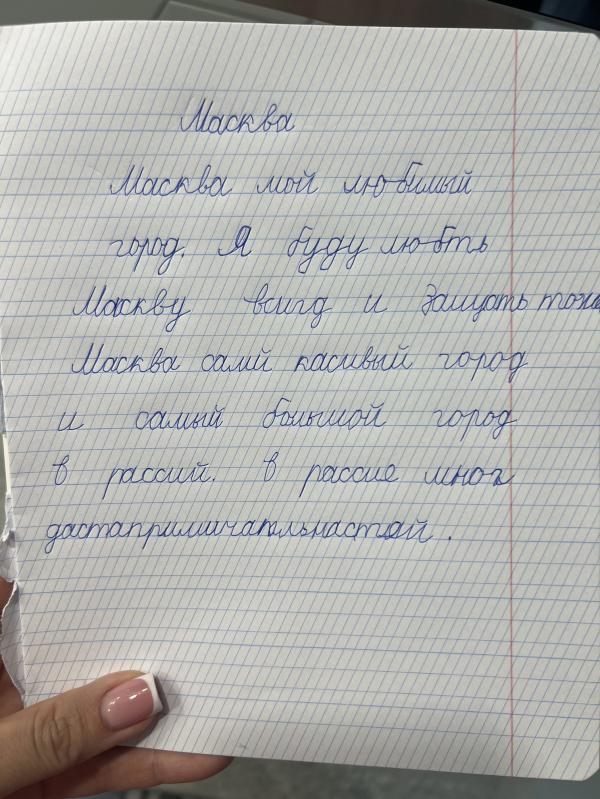 Масква
Масква мой любимый
город. Я буду любть
Маскву всигд и защать тоже
Масква самй касивый город
и самый большой город
в рассий. в рассие мног
дастапримичательнастей.